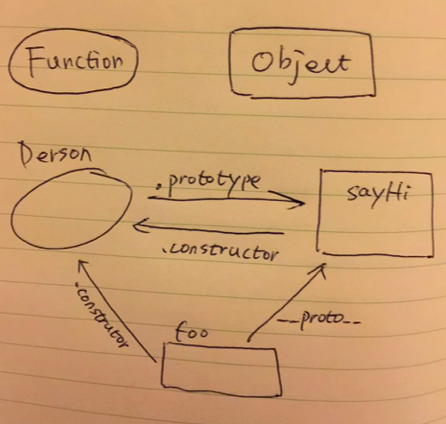 Function
Object
Person
.prototype
sayHi
.constructor
.construtor
foo
__proto__